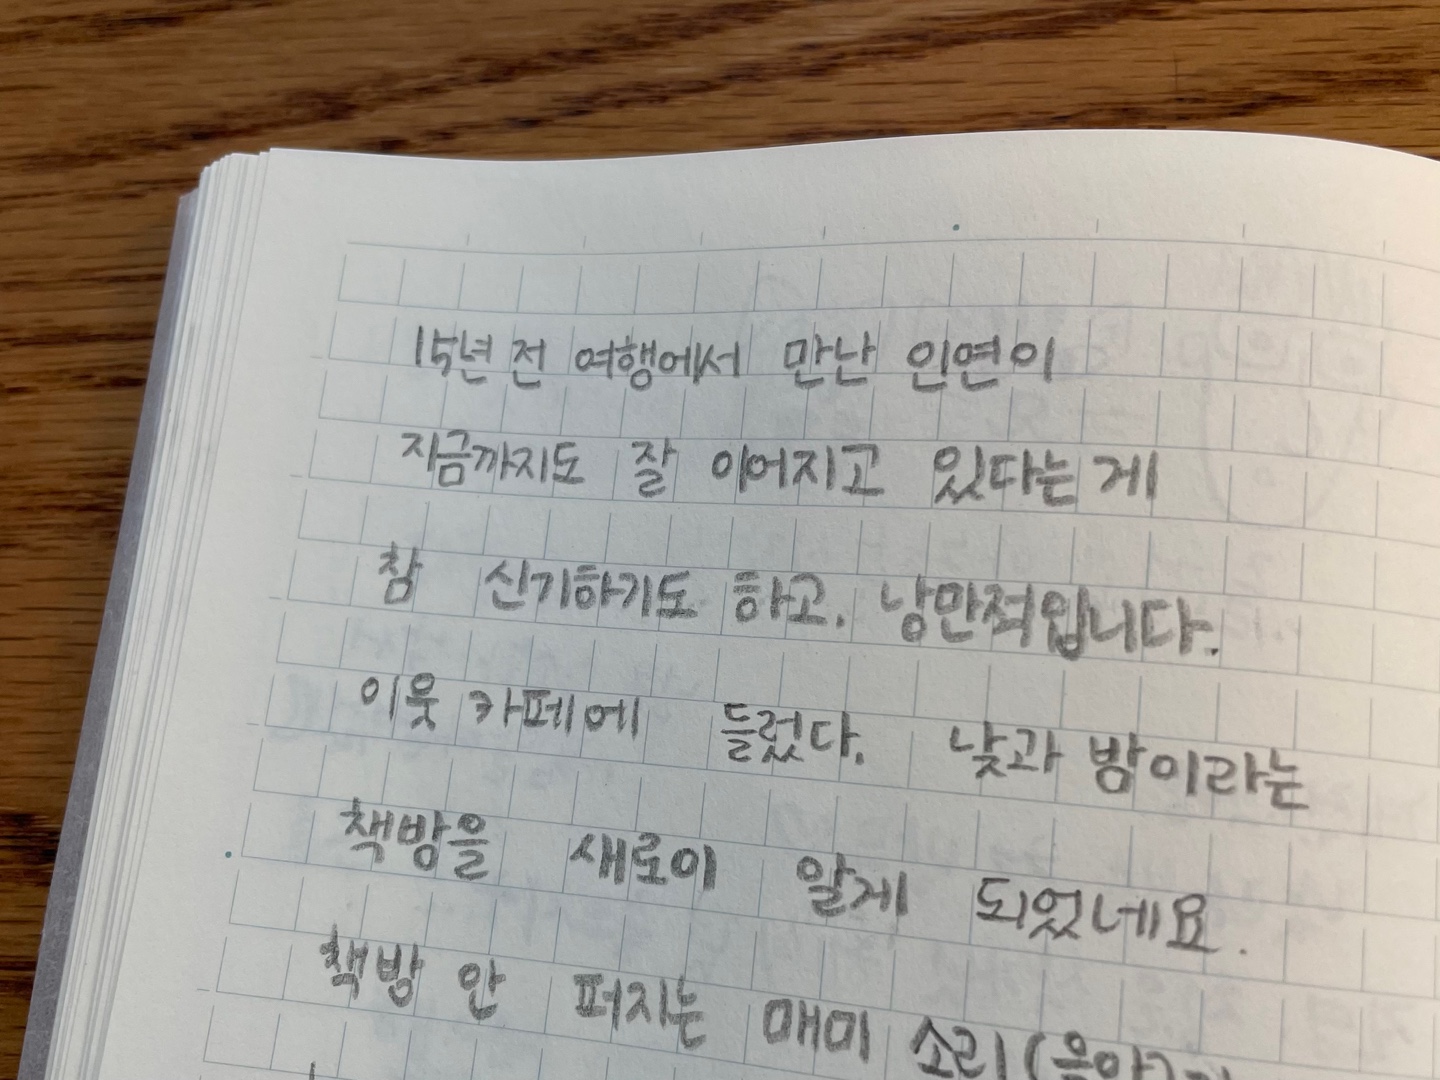 15년 전 여행에서 만난 인연이
지금까지도 잘 이어지고 있다는 게
참 신기하기도 하고. 낭만적입니다.
이웃 카페에 들렀다. 낮과 밤이라는
책방을 새로이 알게 되었네요.
책방 안 퍼지는 매미 소리(음악